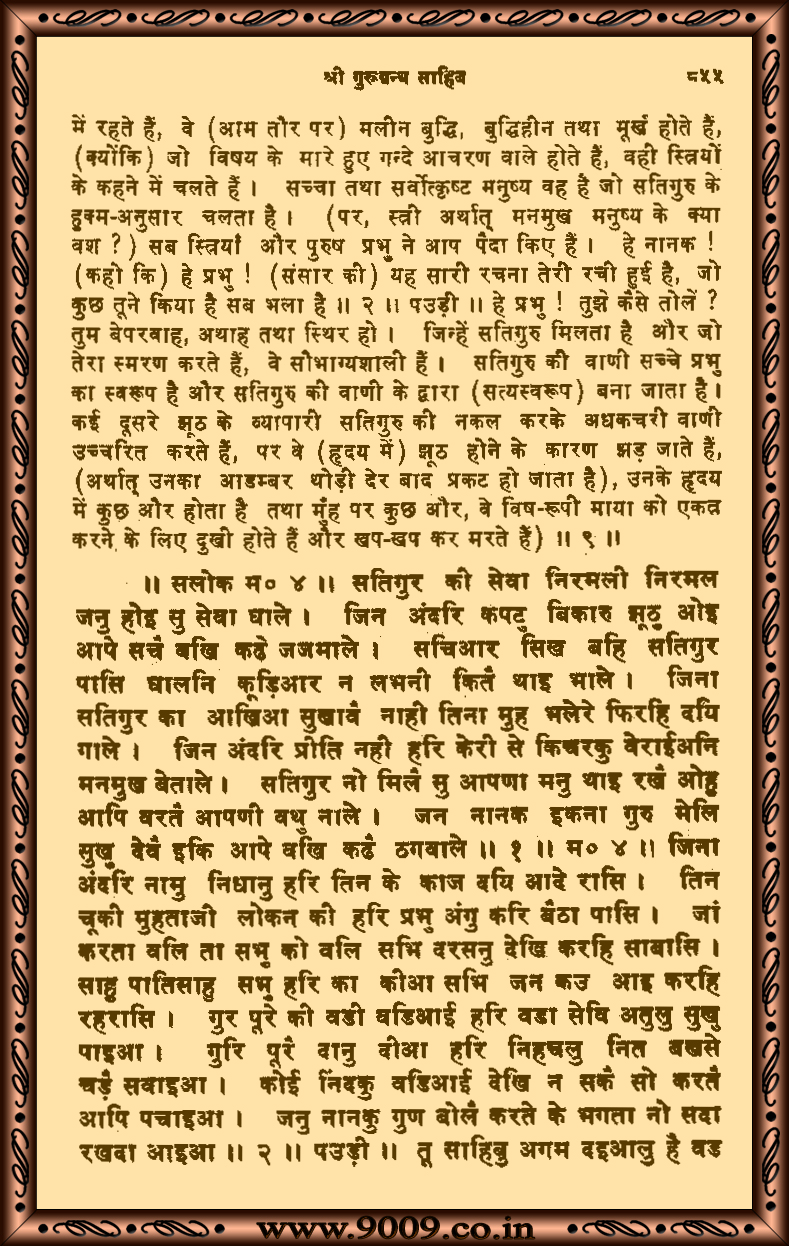 श्री गुरुग्रन्थ साहिब ८५५
में रहते हैं, वे (आम तौर पर) मलीन बुद्धि, बुद्धिहीन तथा मूर्ख होते हैं,
(क्योंकि) जो विषय के मारे हुए गन्दे आचरण वाले होते हैं, वही स्त्रियों
के कहने में चलते हैं । सच्चा तथा सर्वोत्कृष्ट मनुष्य वह है जो सतिगुरु के
हुक्म-अनुसार चलता है । (पर, स्त्री अर्थात् मनमुख मनुष्य के क्या
वश ?) सब स्त्रियाँ और पुरुष प्रभु ने आप पैदा किए हैं । हे नानक !
(कहो कि) हे प्रभु ! (संसार की) यह सारी रचना तेरी रची हुई है, जो
कुछ तूने किया है सब भला है ॥ २ ॥ पउड़ी ॥ हे प्रभु ! तुझे कैसे तोलें ?
तुम बेपरवाह, अथाह तथा स्थिर हो । जिन्हें सतिगुरु मिलता है और जो
तेरा स्मरण करते हैं, वे सौभाग्यशाली हैं । सतिगुरु की वाणी सच्चे प्रभु
का स्वरूप है और सतिगुरु की वाणी के द्वारा (सत्यस्वरूप) बना जाता है ।
कई दूसरे झूठ के व्यापारी सतिगुरु की नकल करके अधकचरी वाणी
उच्चरित करते हैं, पर वे (हृदय में) झूठ होने के कारण झड़ जाते हैं,
(अर्थात् उनका आडम्बर थोड़ी देर बाद प्रकट हो जाता है), उनके हृदय
में कुछ और होता है तथा मुँह पर कुछ और, वे विष-रूपी माया को एकत्र
करने के लिए दुखी होते हैं और खप-खप कर मरते हैं) ॥ ९ ॥
॥ सलोक म० ४ ॥ सतिगुर की सेवा निरमली निरमल
जनु होइ सु सेवा घाले । जिन अंदरि कपटु बिकारु झूठु ओइ
आपे सचै वखि कढे जजमाले । सचिआर सिख बहि सतिगुर
पासि घालनि कूड़िआर न लभनी कितै थाइ भाले । जिना
सतिगुर का आखिआ सुखावै नाही तिना मुह भलेरे फिरहि दयि
गाले । जिन अंदरि प्रीति नही हरि केरी से किचरकु वेराईअनि
मनमुख बेताले । सतिगुर नो मिलै सु आपणा मनु थाइ रखै ओहु
आपि वरतै आपणी वथु नाले । जन नानक इकना गुरु मेलि
सुखु देवै इकि आपे वखि कढै ठगवाले ॥ १ ॥ म० ४ ॥ जिना
अंदरि नामु निधानु हरि तिन के काज दयि आदे रासि । तिन
चूकी मुहताजी लोकन की हरि प्रभु अंगु करि बैठा पासि । जां
करता वलि ता सभु को वलि सभि दरसनु देखि करहि साबासि ।
साहु पातिसाहु सभु हरि का कीआ सभि जन कउ आइ करहि
रहरासि । गुर पूरे की वडी वडिआई हरि वडा सेवि अतुलु सुखु
पाइआ । गुरि पूरै दानु दीआ हरि निहचलु नित बखसे
चड़ै सवाइआ । कोई निंदकु वडिआई देखि न सकै सो करतै
आपि पचाइआ । जनु नानकु गुण बोलै करते के भगता नो सदा
रखदा आइआ ॥ २ ॥ पउड़ी ॥ तू साहिबु अगम दइआलु है वड
www.9009.co.in